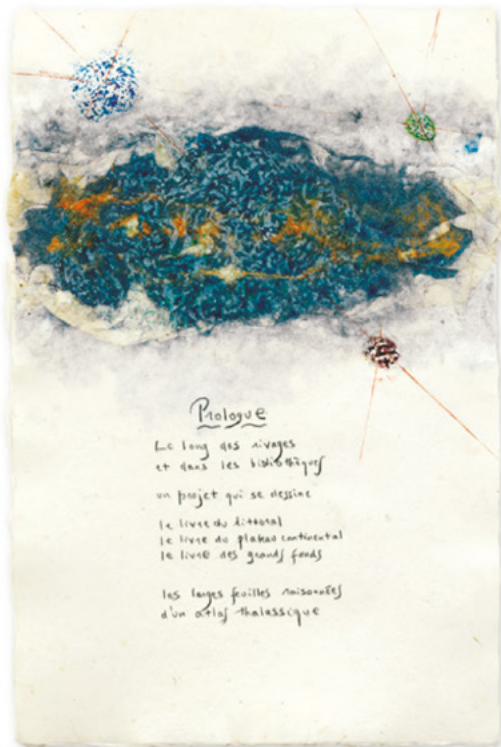 Prologue
Le long des rivages
et dans les bibliothèques
un projet qui se dessine
le livre du littoral
le livre du plateau continental
le livre des grands fonds
les larges feuilles raisonnées
d'un atlas thalassique